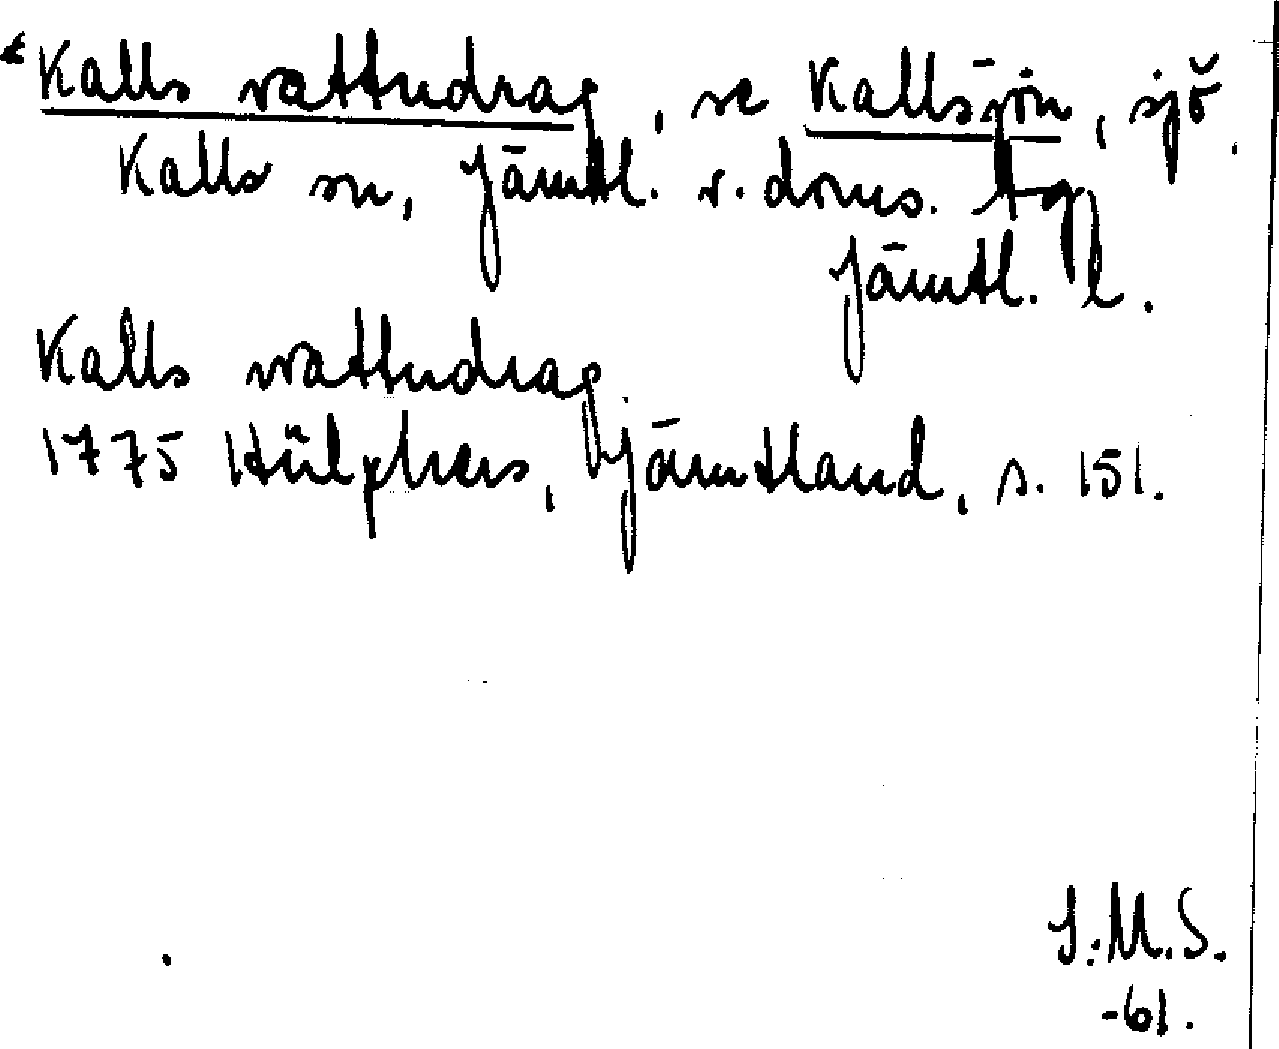 Kalls vattudrag, se Kallsjön, sjö.
Kalls sn, Jämtl. v. doms. tg
Jämtl. l.
Kalls wattudrag
1775 Hülphers, Jämtland, s. 151.
I.M.S.
-61.